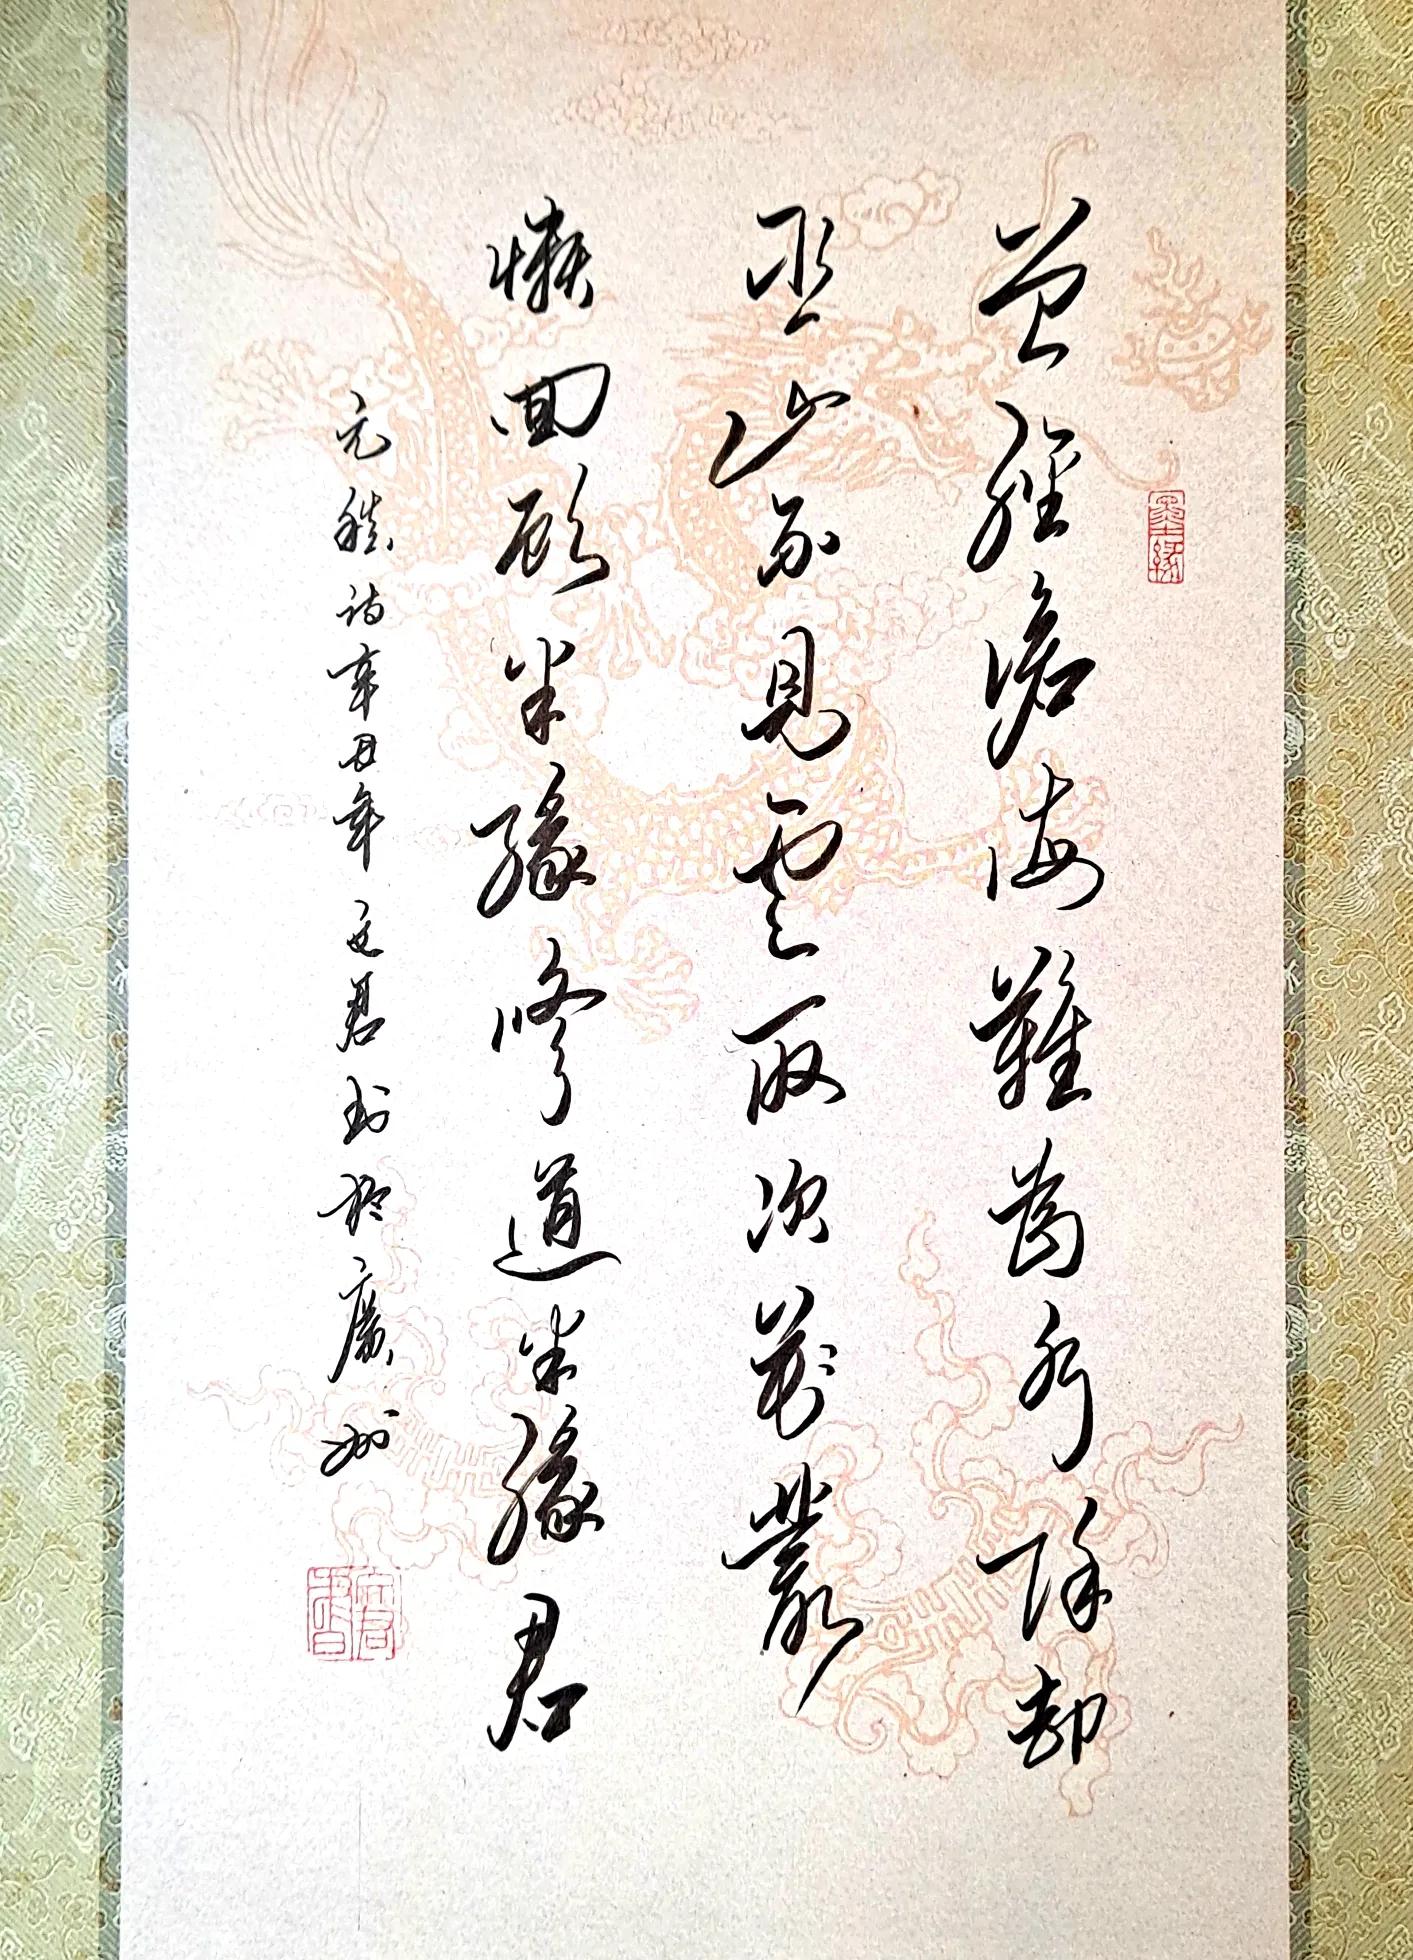 曾經滄海難為水除却
巫山不見雲取次花叢
懶回顧半緣修道半緣君
元稹詩辛丑年文君書於廣州
墨緣
文君